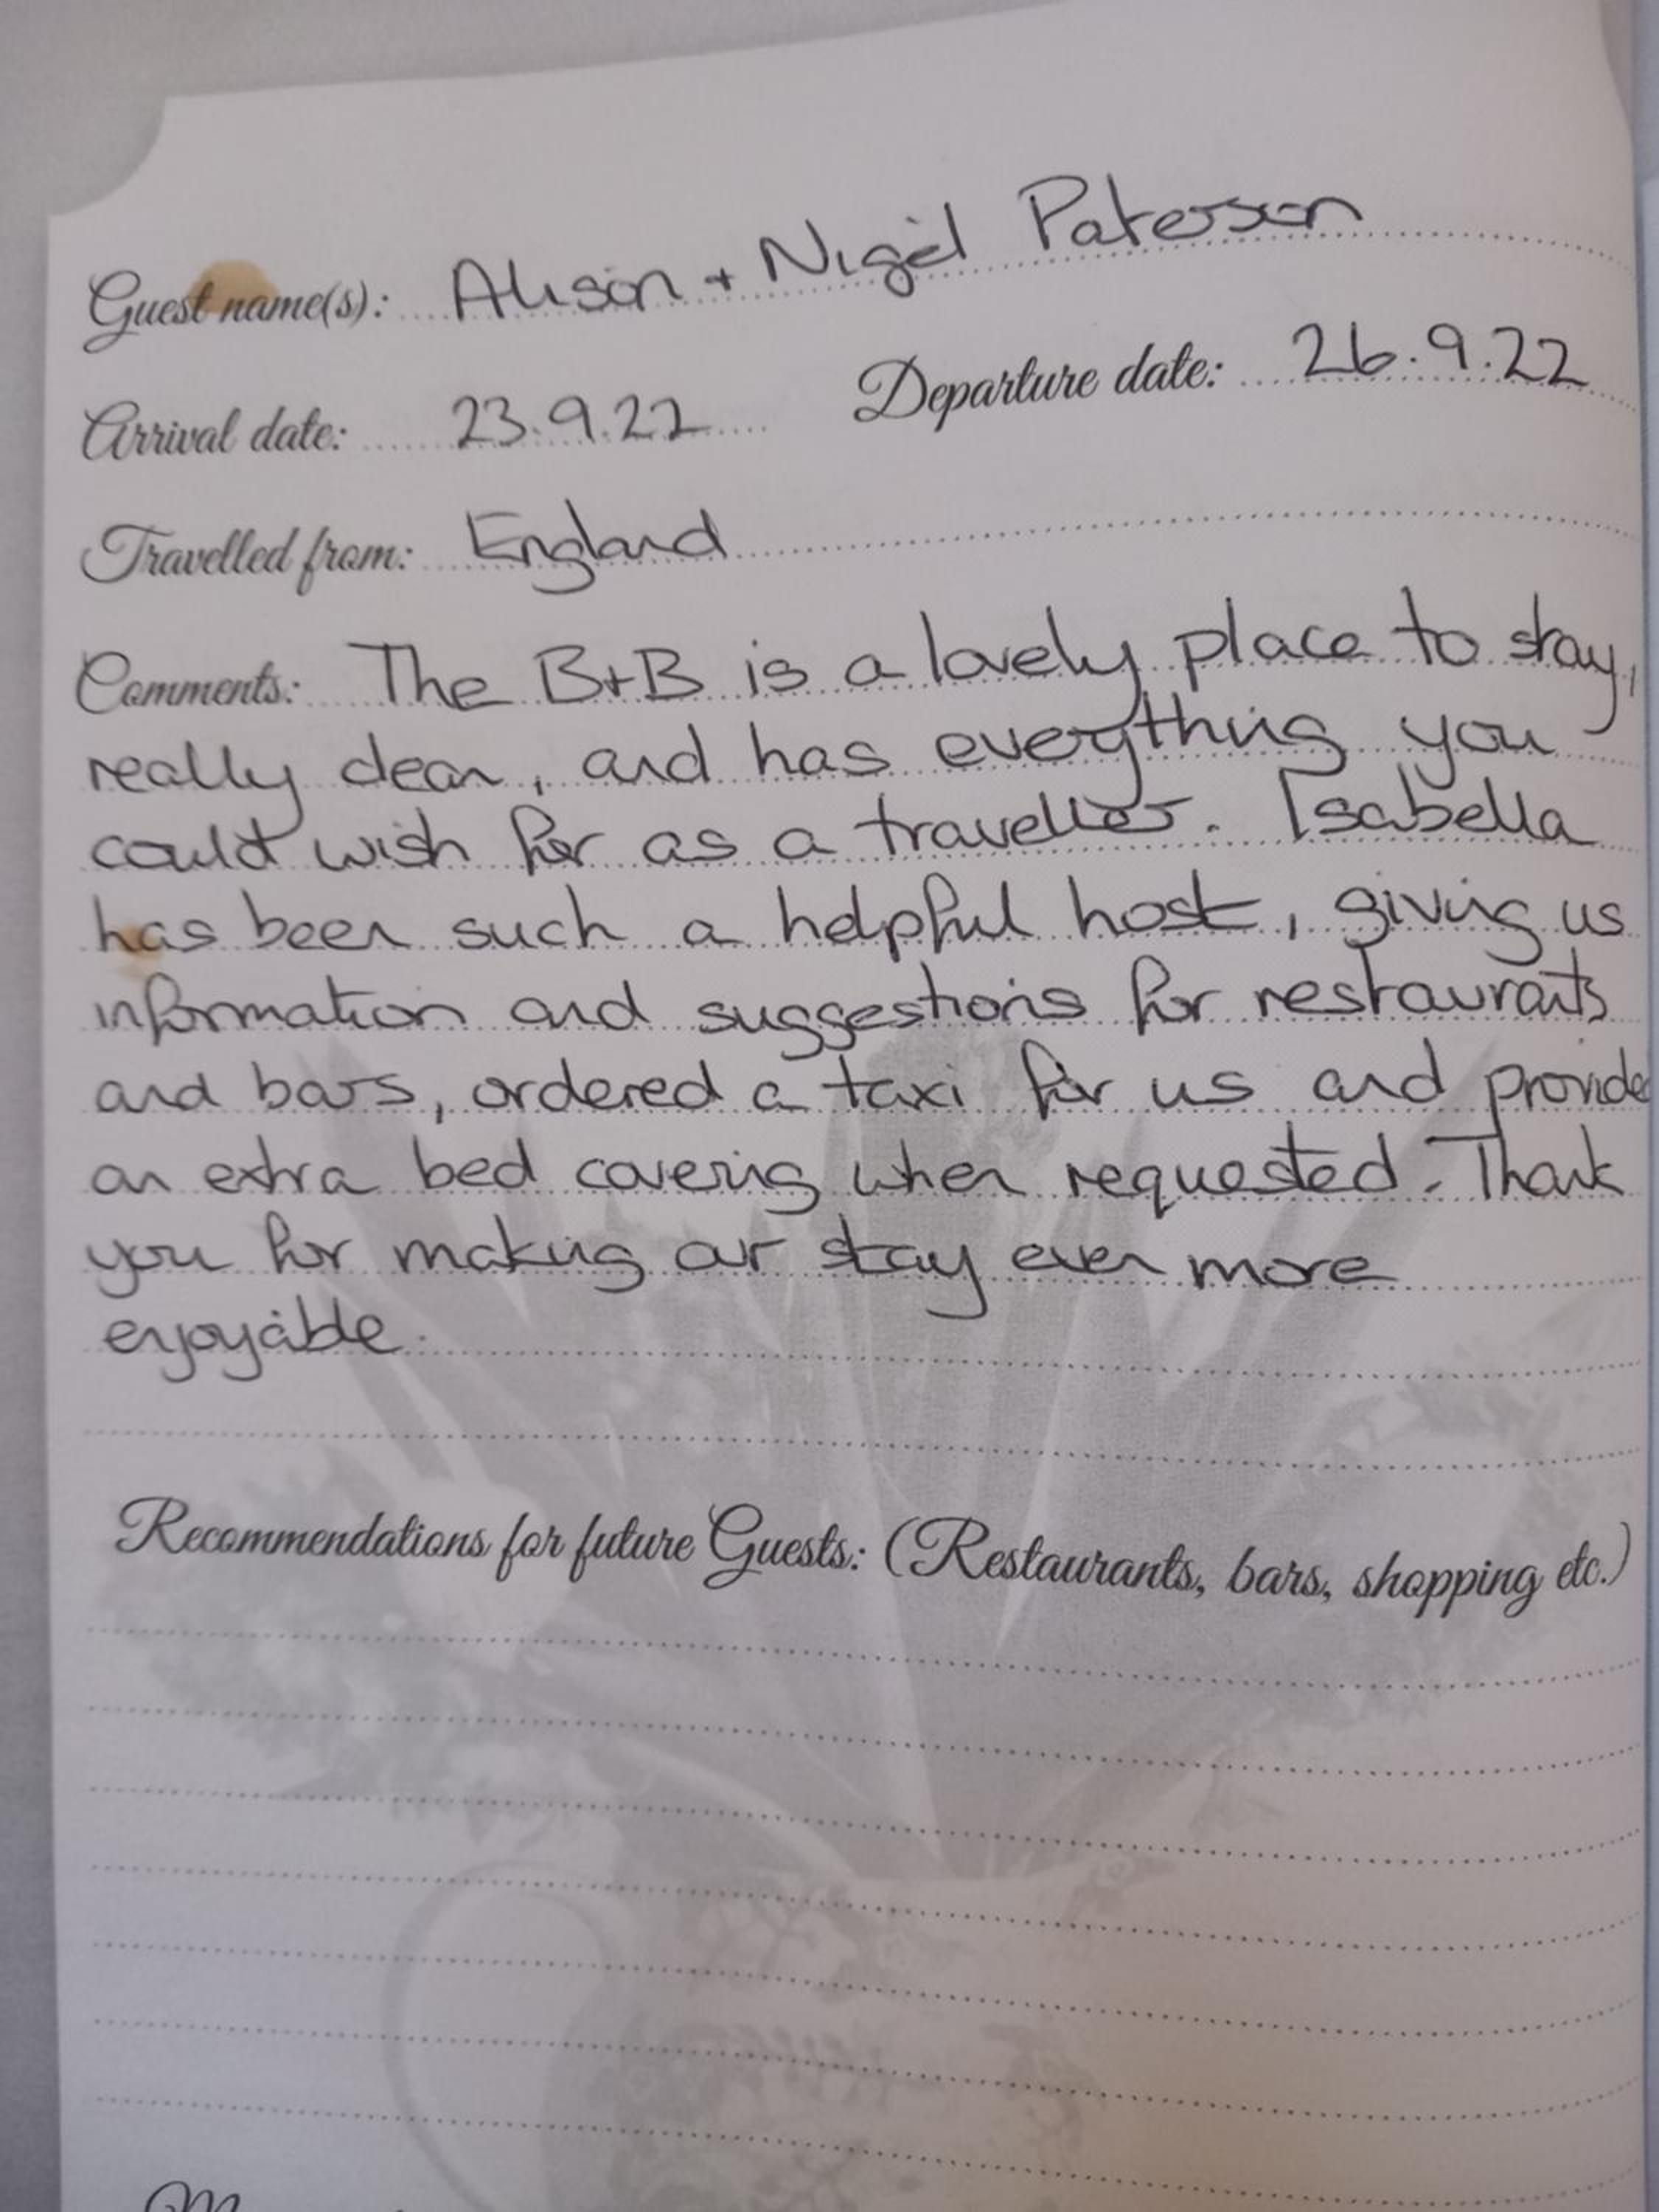 Guest name(s): Alison + Nigel Paterson
Arrival date: 23.9.22 Departure date: 26.9.22
Travelled from: England
Comments: The B+B is a lovely place to stay,
really clean, and has everything you
could wish for as a traveller. Isabella
has been such a helpful host, giving us
information and suggestions for restaurants
and bars, ordered a taxi for us and provided
an extra bed covering when requested. Thank
you for making our stay even more
enjoyable.
Recommendations for future Guests: (Restaurants, bars, shopping etc.)